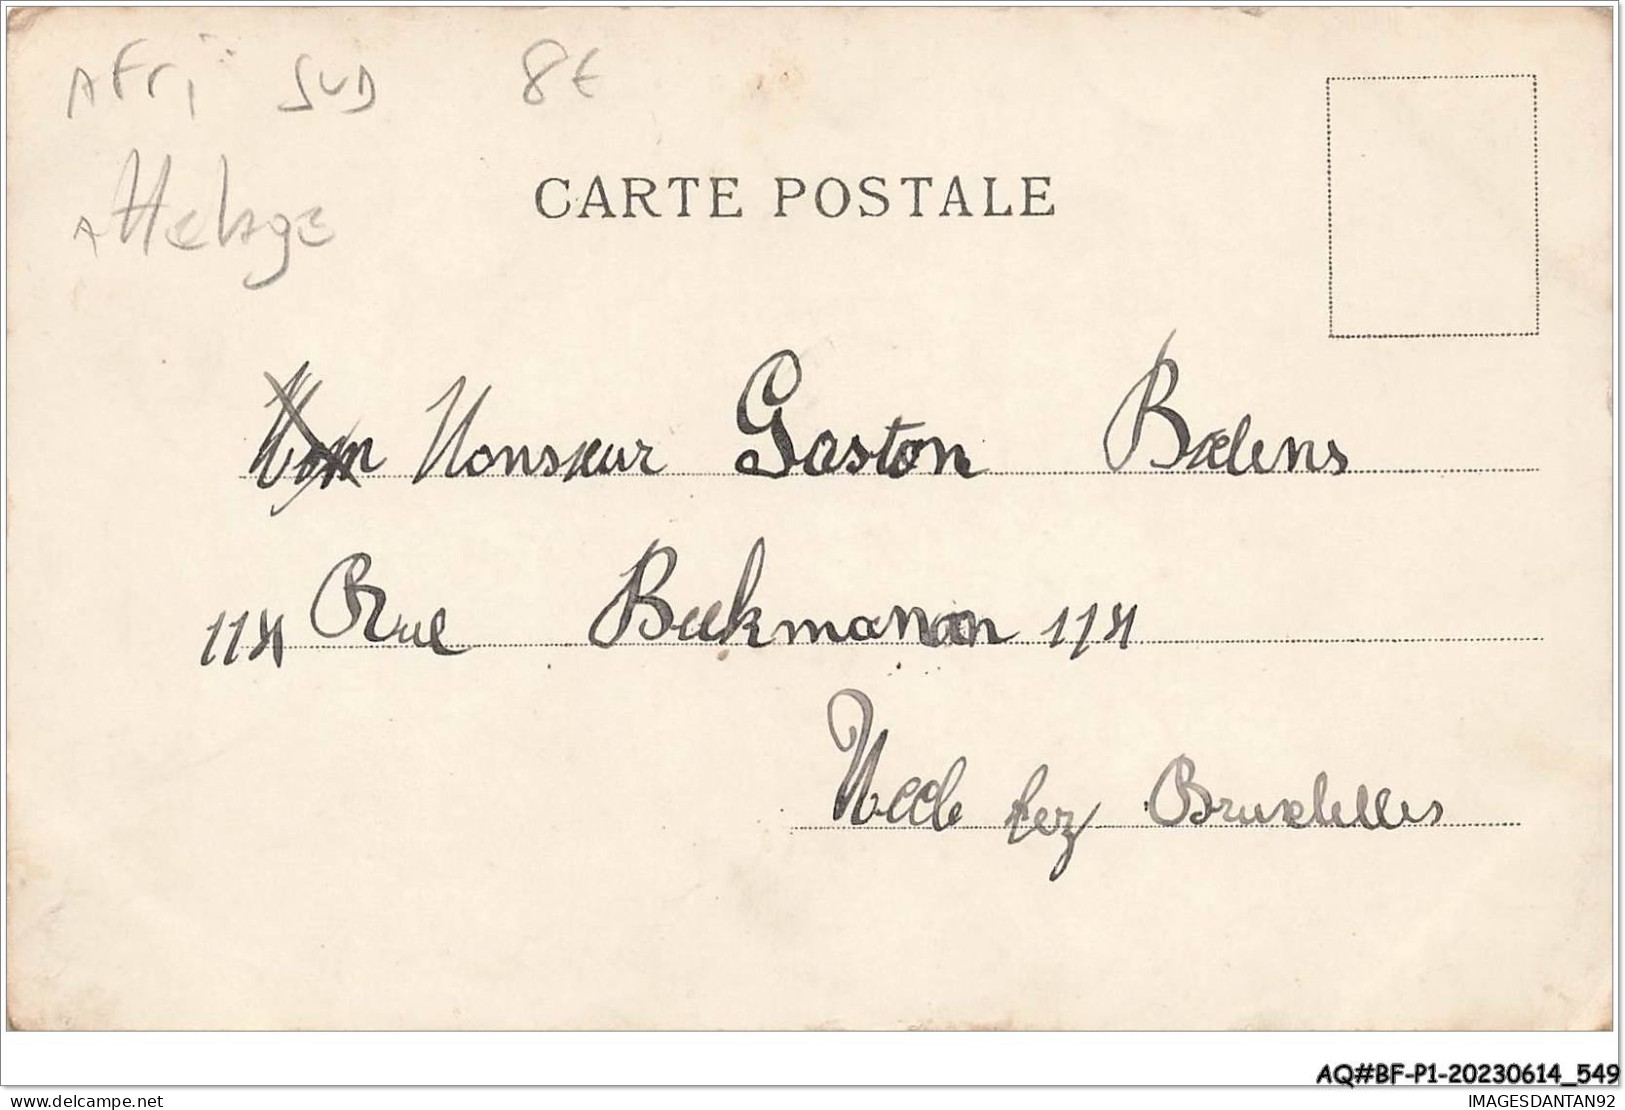 AFri SUD 8€
Attelage
CARTE POSTALE
Monsieur Gaston Baelens
114 Rue Beekmanan 114
Uccle lez Bruxelles
AQ#BF-P1-20230614_549
delcampe.net IMAGESDANTAN92